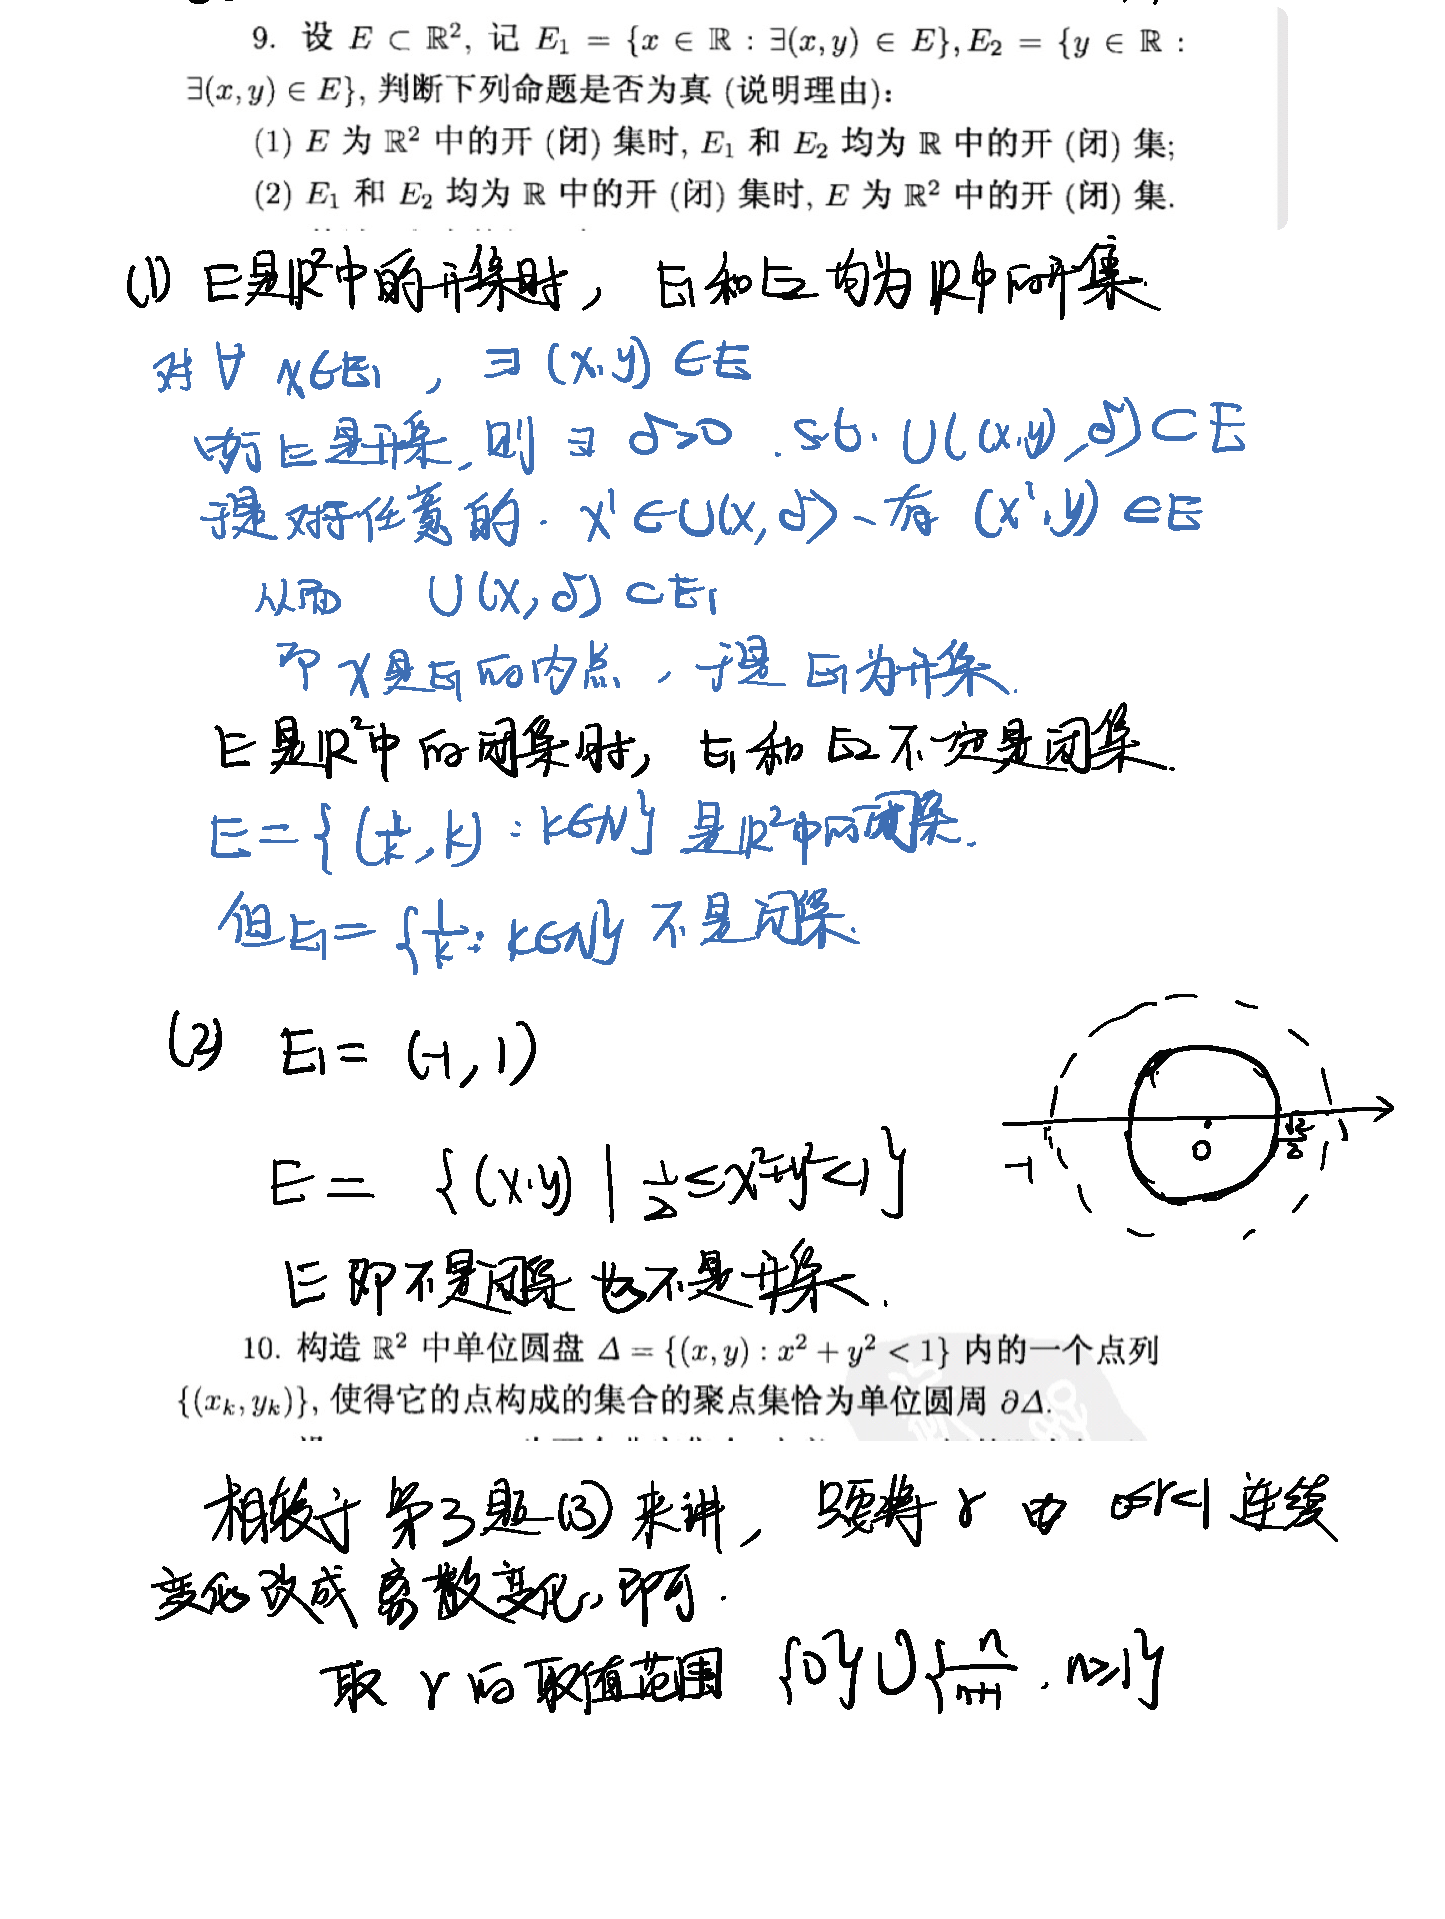 9. 设 E ⊂ ℝ², 记 E₁ = {x ∈ ℝ : ∃(x, y) ∈ E}, E₂ = {y ∈ ℝ :
∃(x, y) ∈ E}, 判断下列命题是否为真 (说明理由):
(1) E 为 ℝ² 中的开 (闭) 集时, E₁ 和 E₂ 均为 ℝ 中的开 (闭) 集;
(2) E₁ 和 E₂ 均为 ℝ 中的开 (闭) 集时, E 为 ℝ² 中的开 (闭) 集.
(1) E是ℝ²中的开集时, E₁和E₂均为ℝ中的开集.
对∀ x∈E₁, ∃ (x,y) ∈E
由于E是开集, 则∃ δ>0. s.t. U((x,y),δ)⊂E
于是对于任意的. x'∈U(x,δ)、有 (x',y)∈E
从而 U(x,δ)⊂E₁
即x是E₁的内点, 于是E₁为开集.
E是ℝ²中的闭集时, E₁和E₂不一定是闭集.
E={(1/k, k) : k∈N} 是ℝ²中的闭集.
但E₁={1/k : k∈N} 不是闭集.
(2) E₁= (-1, 1)
-1 0 √2/2 1
E= {(x,y) | 1/2≤x²+y²<1}
E即不是闭集也不是开集.
10. 构造 ℝ² 中单位圆盘 Δ = {(x, y) : x² + y² < 1} 内的一个点列
{(xₖ, yₖ)}, 使得它的点构成的集合的聚点集恰为单位圆周 ∂Δ.
相较于第3题(3)来讲, 只要将r由 0≤r<1 连续
变化改成离散变化, 即可.
取r的取值范围 {0}∪{n/(n+1), n≥1}